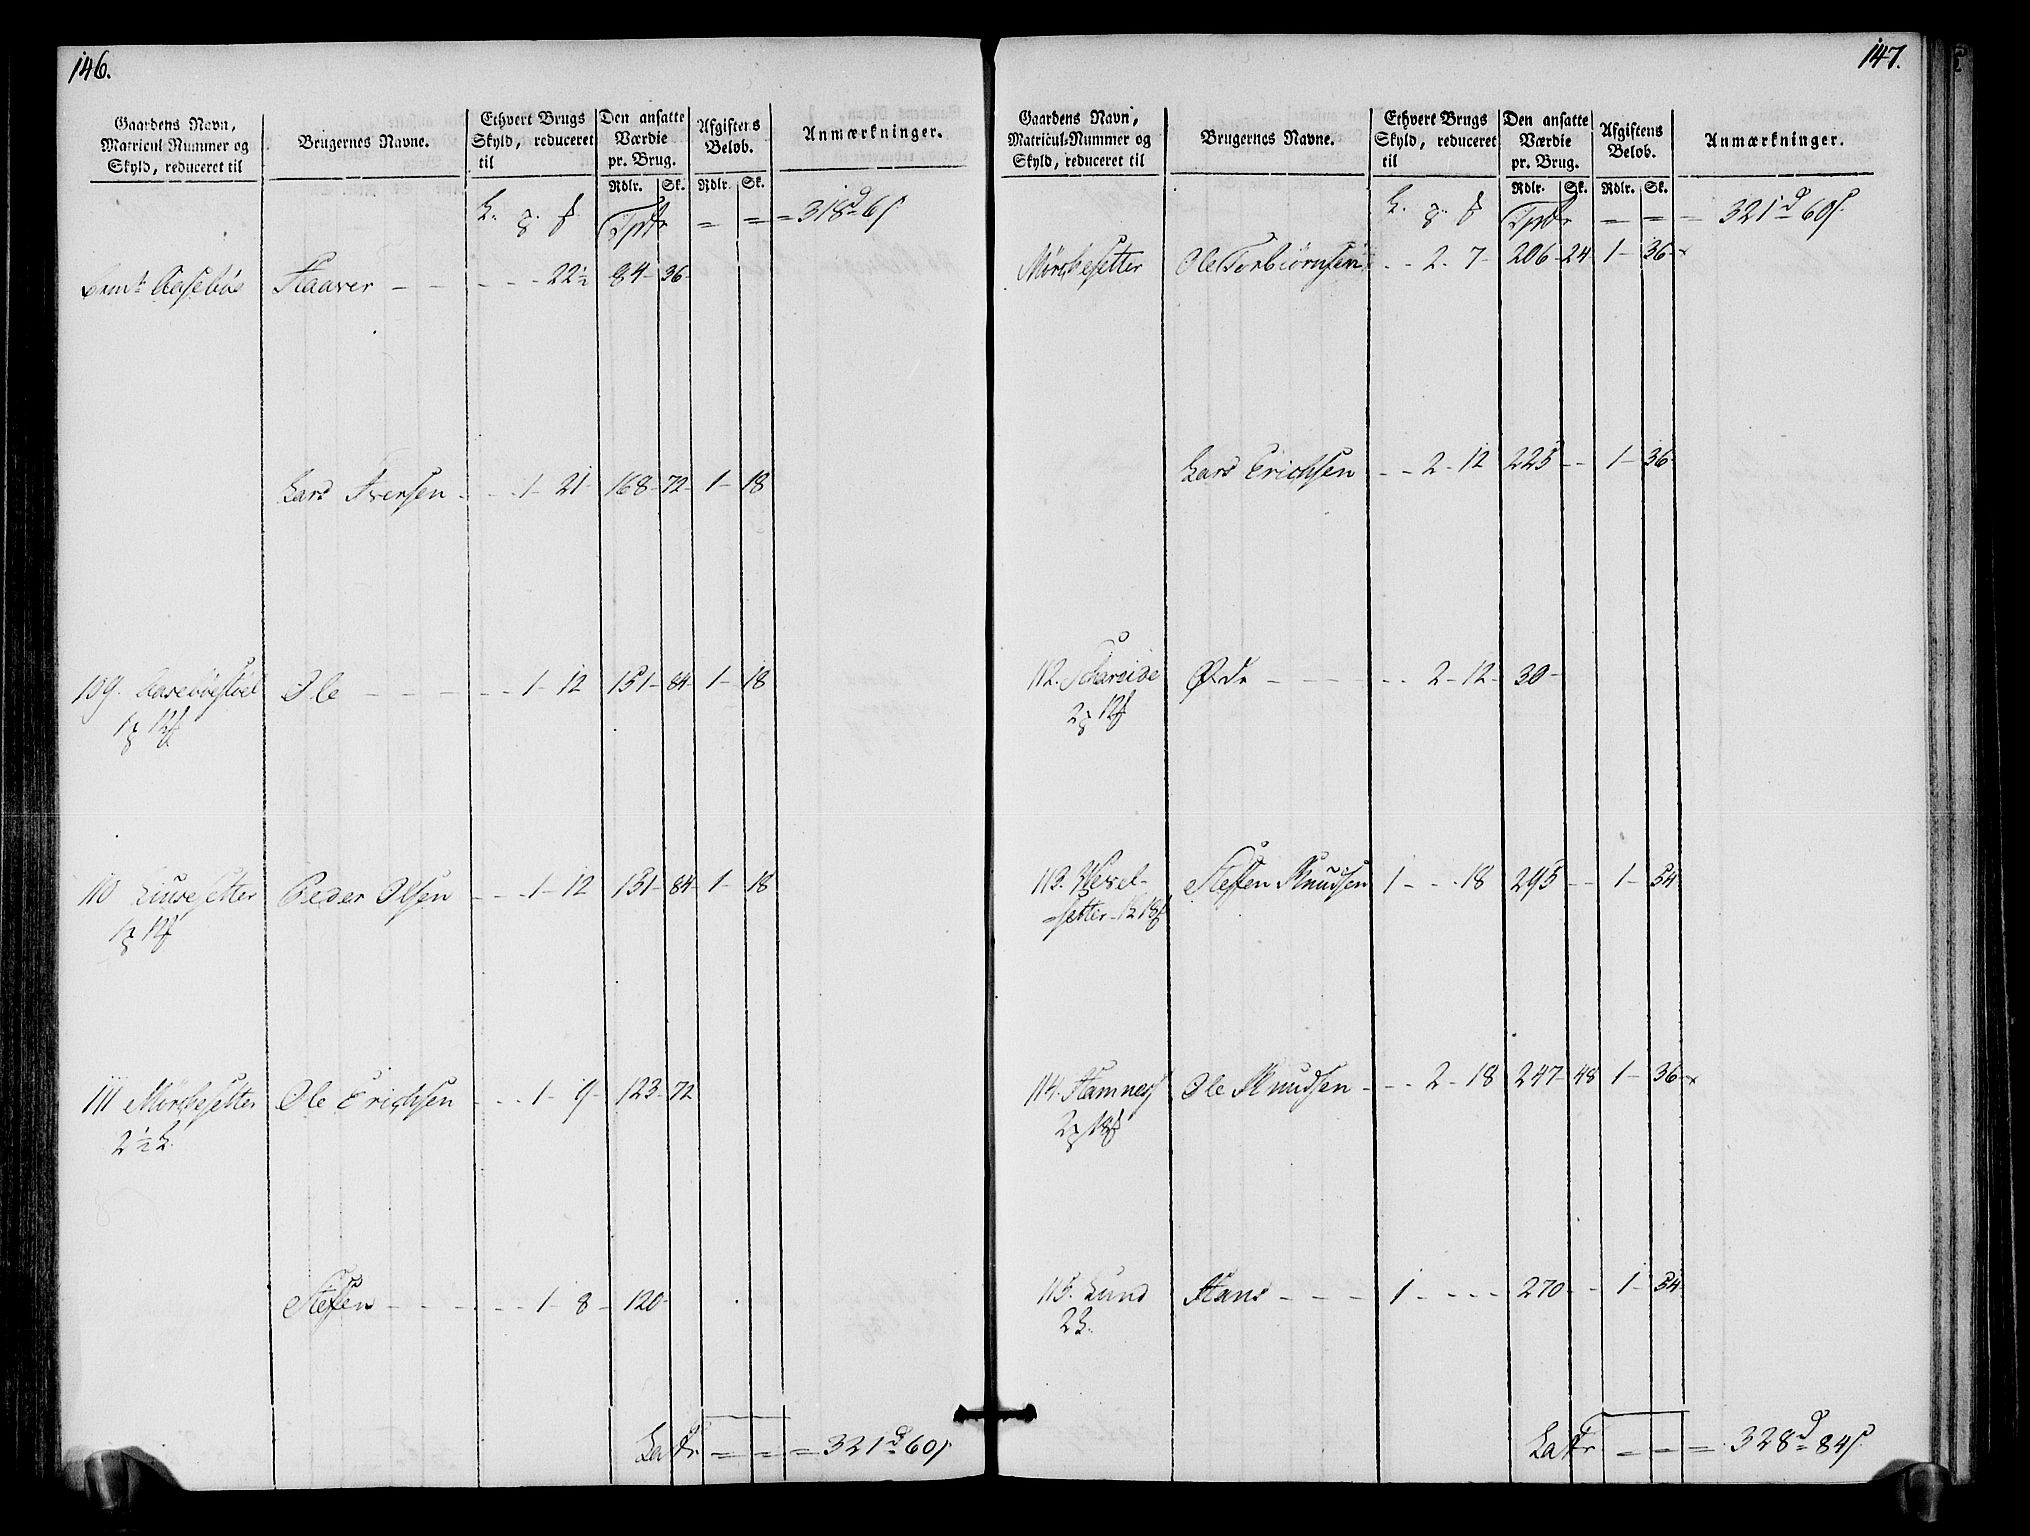 146.
Gaardens Navn, Matricul-Nummer og Skyld, reduceret til
Brugernes Navne.
Ethvert Brugs Skyld, reduceret til
Den ansatte Værdie pr. Brug.
Afgiftens Beløb.
Anmærkninger.
Rdlr. Sk. Rdlr. Sk.
Tpr = = = 318d 6s.
Aasebøe Haaver - - - - - 22½ 84- 36-
Lars Iversen - - - 1- 21- 168- 72- 1- 18
109. Aasebøestøel Ole - - - - - 1- 12 151- 84- 1- 18
110 Liusesetter Peder Olsen - - 1- 12 151- 84- 1- 18
111 Mørchesetter Ole Erichsen - - - 1- 9- 123- 72
2½ L.
Steffen - - - - - 1- 8- 120-
Latr = = = 321d 60s.
147.
Gaardens Navn, Matricul-Nummer og Skyld, reduceret til
Brugernes Navne.
Ethvert Brugs Skyld, reduceret til
Den ansatte Værdie pr. Brug.
Afgiftens Beløb.
Anmærkninger.
Rdlr. Sk. Rdlr. Sk.
Tpr = = = 321d 60s.
Mørchesetter Ole Torbiørnsen - - 2- 7- 206- 24- 1- 36-
Lars Erichsen - - 2- 12 225- - 1- 36-
112. Schareide Øde - - - - - 2- 12- 30-
113. Wexel- Steffen Knudsen 1- - - 18 295- - 1- 54
setter
114. Hamnes Ole Knudsen - - - 2- 18 247- 48 1- 36-
115. Lund Hans - - - 1- - - - 270- - 1- 54-
2 L.
Latr = = = 328d 84s.